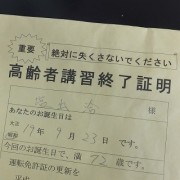 重要
絶対に失くさないでください
高齢者講習終了証明
様
あなたのお誕生日は
大正
昭和 19年 9月 23日 です。
今回のお誕生日で、満 72 歳です。
運転免許証の更新を